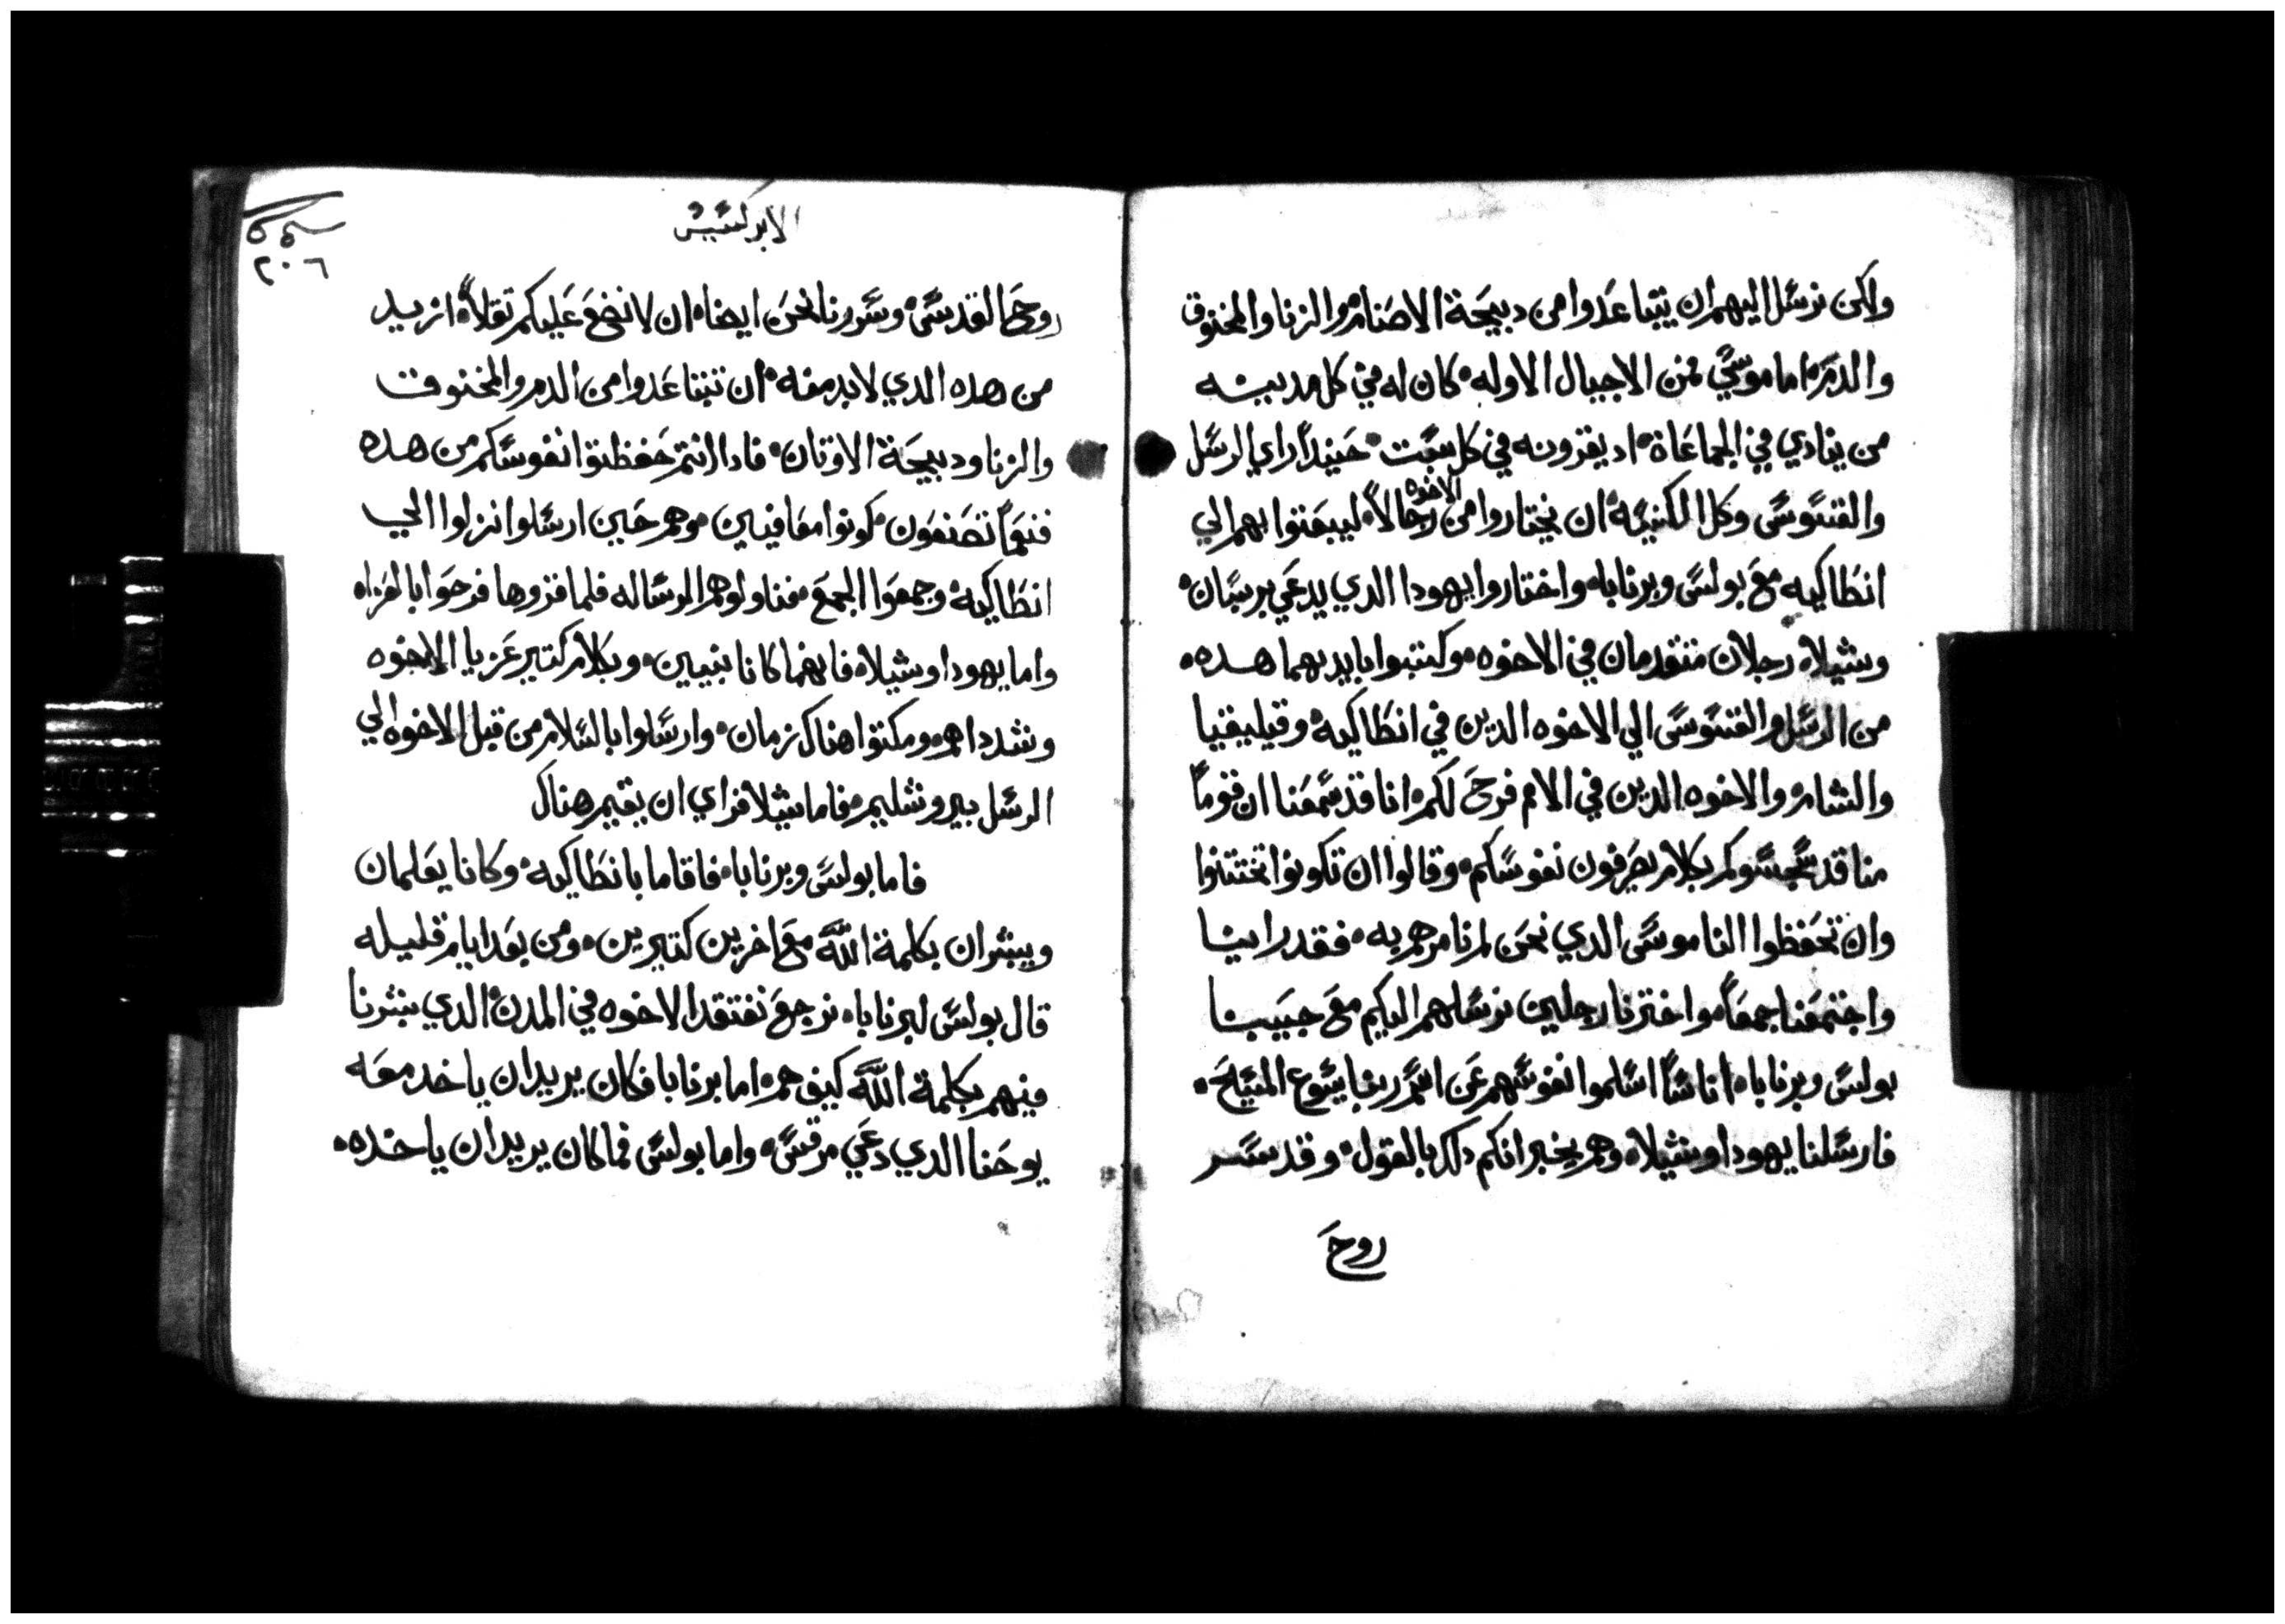 ولكن نرسل اليهم ان يتباعدوا من دبيحة الاصنام والزنا والمخنوق
والدم اما موسي فمن الاجيال الاوله كان له في كل مدينه
من ينادي في الجماعاة اد يقرونه في كل سبت حينيدا راي الرسل
والقسوس وكل الكنيسه ان يختاروا من الاخوه رجالا ليبعتوا بهم الي
انطاكيه مع بولس وبرنابا واختاروا يهودا الدي يدعي برسبان
وشيلا رجلان متقدمان في الاخوه وكتبوا بايديهما هده
من الرسل والقسوس الي الاخوه الدين في انطاكيه وقيليقيا
والشام والاخوه الدين في الامم فرح لكم انا قد سمعنا ان قوما
منا قد سجسوكم بكلام يصرفون نفوسكم وقالوا ان تكونوا تختتنوا
وان تحفظوا الناموس الدي نحن لم نامرهم به فقد راينا
واجتمعنا جمعا واخترنا رجلين نرسلهم اليكم مع حبيبنا
بولس وبرنابا اناسا اسلموا نفوسهم عن اسم ربنا يسوع المسيح
فارسلنا يهودا وشيلا وهم يخبرانكم دلك بالقول وقد سر
روح
الابركسيس
٢٠٦
روح القدس وسررنا نحن ايضا ان لا نضع عليكم تقلا ازيد
من هده الدي لابد منه ان تتباعدوا من الدم والمخنوق
والزنا ودبيحة الاوتان فادا انتم حفظتوا نفوسكم من هده
فنعما تصنعون كونوا معافيين وهم حين ارسلوا انزلوا الي
انطاكيه وجمعوا الجمع فناولوهم الرساله فلما قروها فرحوا بالعزاه
واما يهودا وشيلا فانهما كانا نبيين وبكلام كتير عزيا الاخوه
وشدداهم ومكتوا هناك زمان وارسلوا بالسلام من قبل الاخوه الي
الرسل بيروشليم فاما شيلا فراي ان يقيم هناك
فاما بولس وبرنابا فاقاما بانطاكيه وكانا يعلمان
ويبشران بكلمة الله مع اخرين كتيرين ومن بعد ايام قليله
قال بولس لبرنابا نرجع نفتقد الاخوه في المدن الدي بشرنا
فيهم بكلمة الله كيف هم اما برنابا فكان يريد ان ياخد معه
يوحنا الدي دعي مرقس واما بولس فما كان يريد ان ياخده